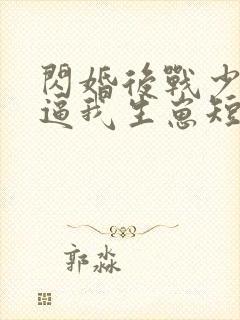 閃婚後戰少
逼我生崽短
郭淼